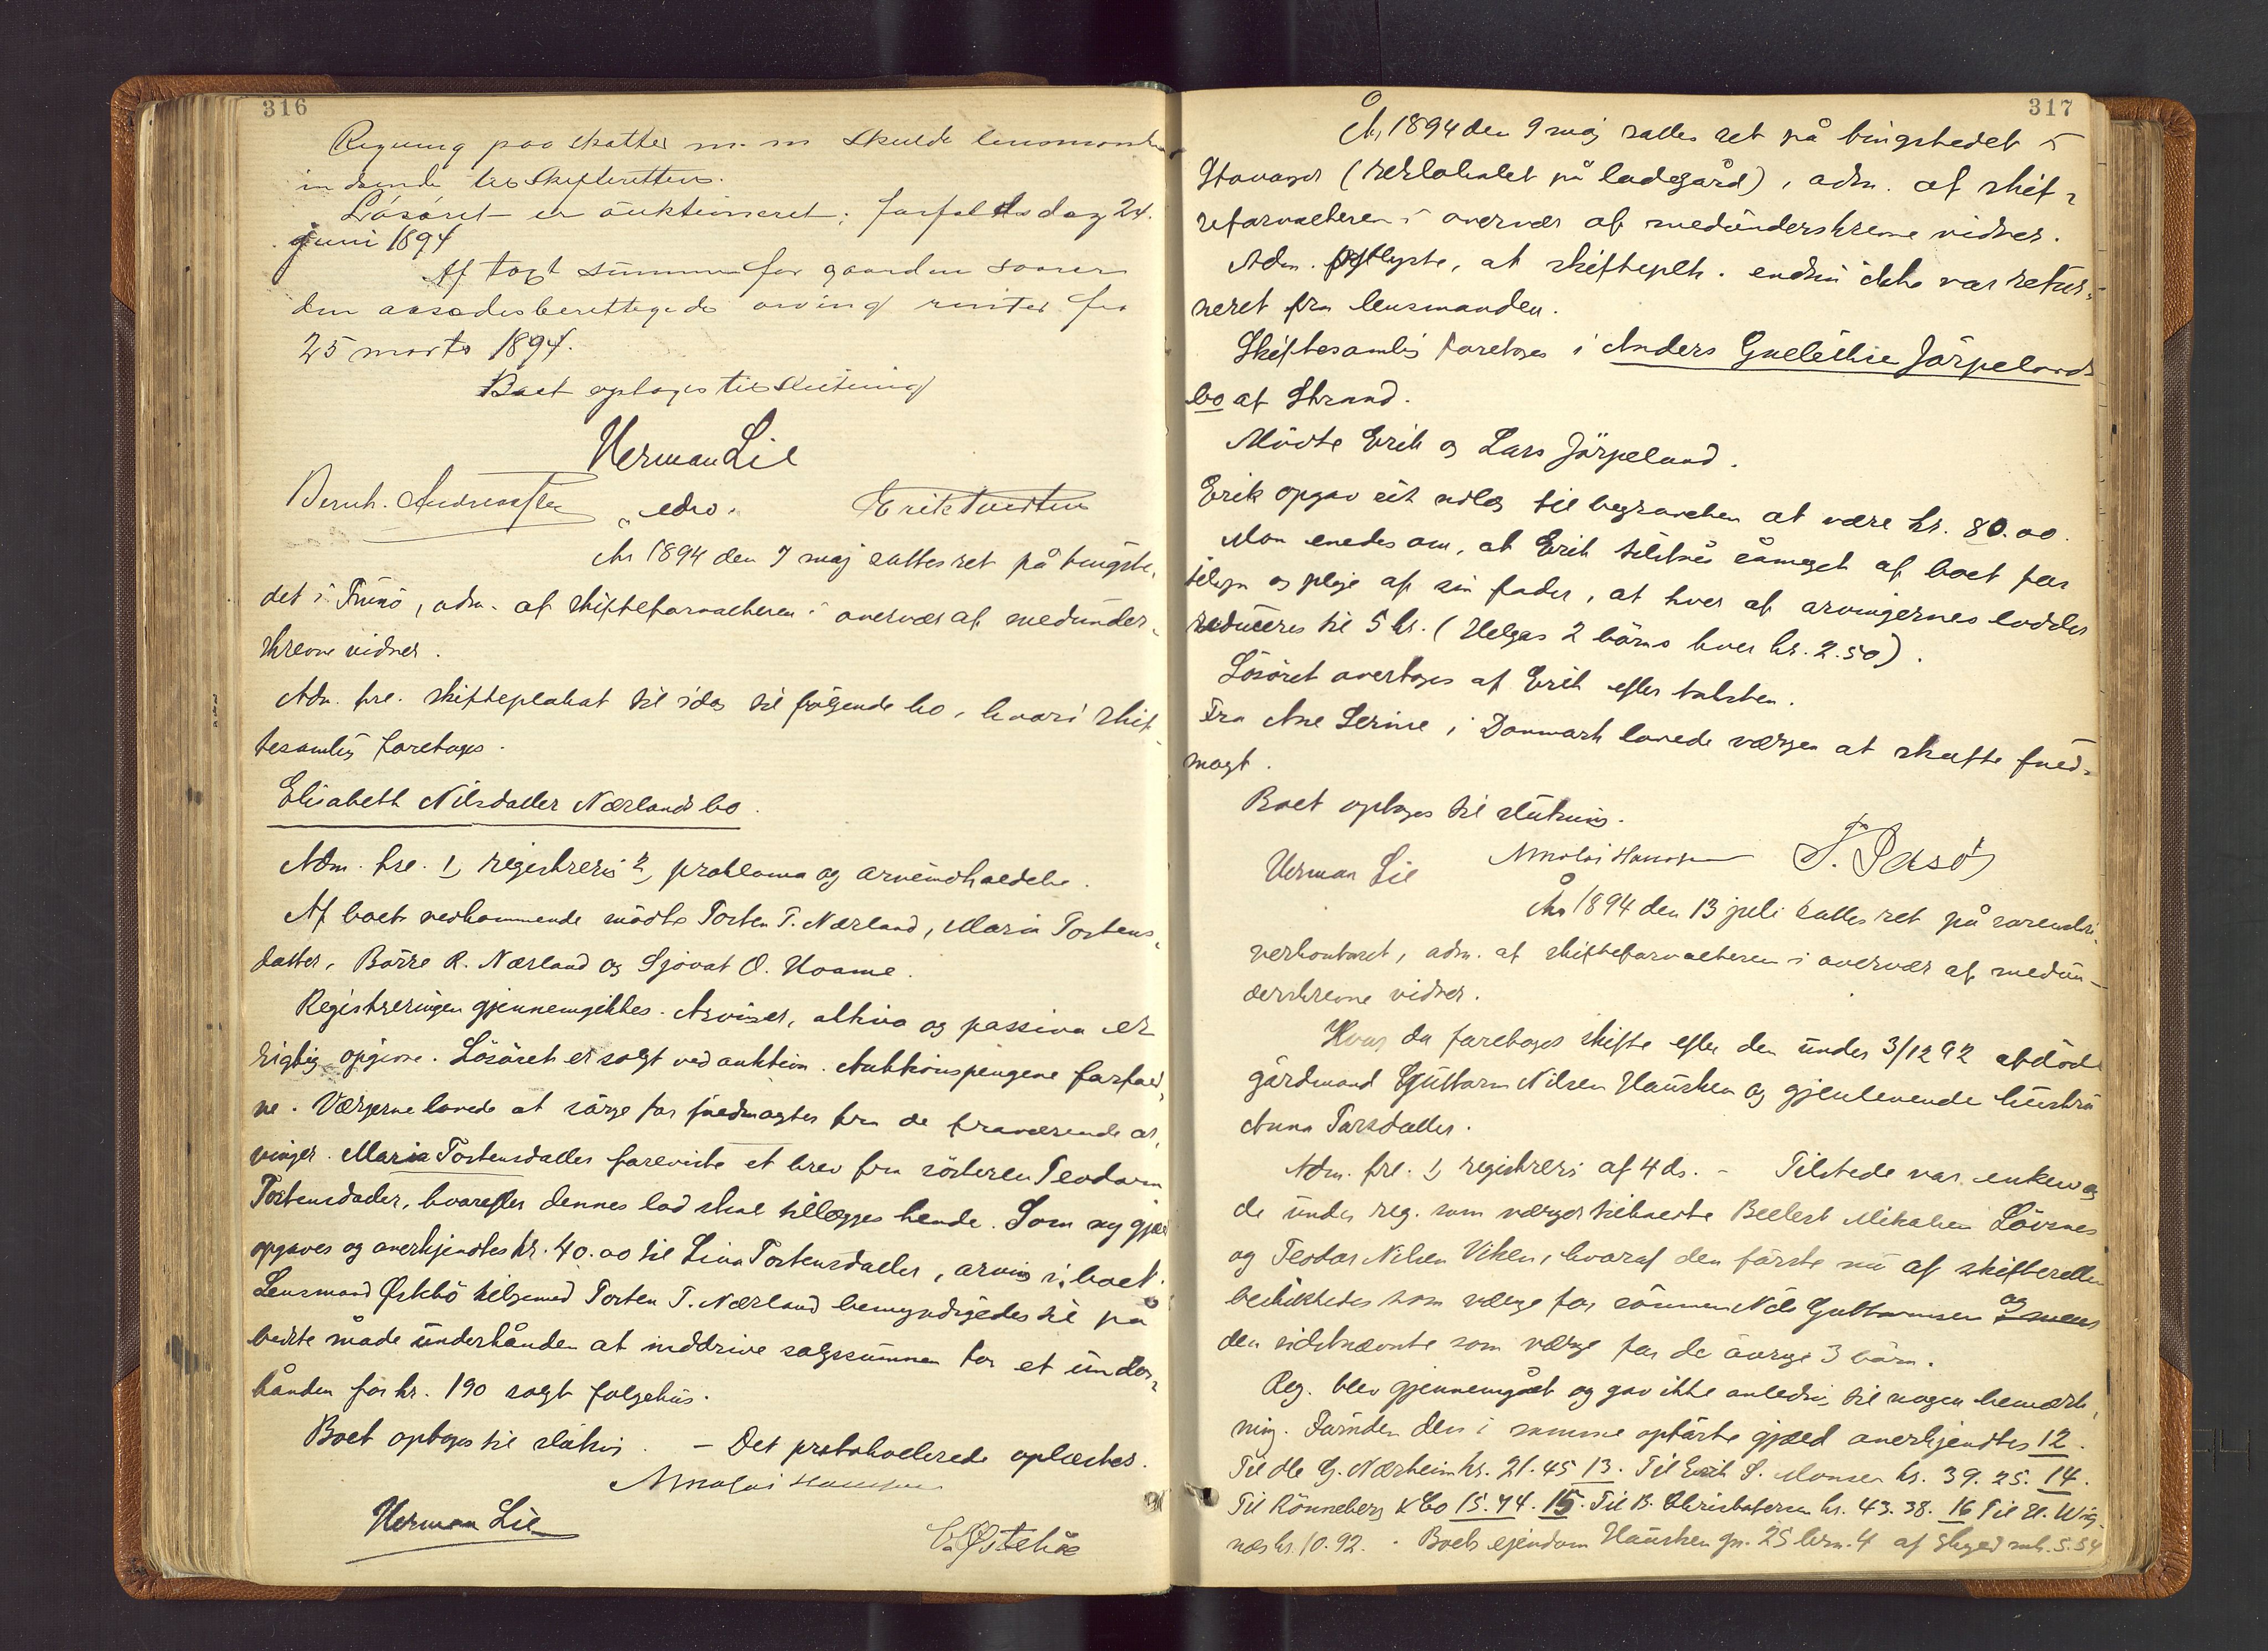 316
Regning paa skatter m. m skulde lensmanden
indsende til skifteretten.
Løsøret er auktioneret; forfaldsdag 24.
juni 1894
Af taxt summen for gaarden svarer
den aasædesberettigede arving renter fra
25 marts 1894.
Boet optoges til slutning
Herman Lie
Bernh. Andreassen edsv. Erik Tuesten
År 1894 den 7 maj sattes ret på tingste-
det i Finnø, adm. af skifteforvalteren i overvær af medunder-
skrevne vidner.
Adm. fre. skifteplakat til idag til følgende bo, hvori skif-
tesamling foretoges.
Elisabeth Nilsdatter Nærlands bo.
Adm. fre. 1, registrering 2, proklama og arveindkaldelse.
Af boets vedkommende mødte Torsten T. Nærland, Maria Torstens-
datter, Børre R. Nærland og Sjovat O. Hoame.
Registreringen gjennemgikkes. Arvinger, aktiva og passiva er
rigtig opgivne. Løsøret er solgt ved auktion. Auktionspengene forfald-
ne. Værgerne lovede at sørge for fuldmagter fra de fraværende ar-
vinger. Maria Torstensdatter foreviste et brev fra søsteren Teodora
Torstensdatter, hvorefter dennes lod skal tillægges hende. Som ny gjæld
opgaves og anerkjendtes kr. 40.00 til Lina Torstensdatter, arving i boet.
Lensmand Østebø tilligemed Torsten T. Nærland bemyndigedes til på
bedste måde underhånden at inddrive salgssummen for et under-
hånden for kr. 190 solgt følgehus.
Boet optoges til slutning. – Det protokollerede oplæstes.
Nikolai Hansen
Herman Lie
E. Østebøe
317
År 1894 den 9 maj sattes ret på tingstedet i
Stavanger (retslokalet på ladegård), adm. af skif-
teforvalteren i overvær af medunderskrevne vidner.
Adm. oplyste, at skifteplk. endnu ikke var retur-
neret fra lensmanden.
Skiftesamling foretoges i Anders Gulliksen Jørpelands
bo af Strand.
Mødte Erik og Lars Jørpeland.
Erik opgav sit udlæg til begravelsen at være kr. 80.00.
Man enedes om, at Erik tilstås såmeget af boet for
tilsyn og pleje af sin fader, at hver af arvingernes lodder
reduceres til 5 kr. (Helgas 2 børns hver kr. 2.50).
Løsøret overtoges af Erik efter taksten.
Fra Ane Serine i Danmark lovede værgen at skaffe fuld-
magt.
Boet optoges til slutning.
Herman Lie Nikolai Hansen
År 1894 den 13 juli sattes ret på sorenskri-
verkontoret, adm. af skifteforvalteren i overvær af medun-
derskrevne vidner.
Hvor da foretoges skifte efter den under 3/12 92 afdøde
gårdmand Guttorm Nilsen Hausken og gjenlevende hustru
Anna Larsdatter.
Adm. fre. 1, registrering af 4 ds. – Tilstede var enken og
de under reg. som værger tilkaldte Mikalsen Løvsnes
og Teodor Nilsen Viken, hvoraf den første nu af skifteretten
beskikkedes som værge for sønnen Nils Guttormsen og
den sidstnævnte som værge for de øvrige 3 børn.
Reg. blev gjennemgået og gav ikke anledning til nogen bemærk-
ning. Foruden den i samme opførte gjæld anerkjendtes 12.
Til Ole G. Nærheim kr. 21.45 13. Til Erik S. Monsen kr. 39.25. 14.
Til Rønneberg & Co 15.74. 15. Til B. Christophersen kr. 43.38. 16 Til H. Wig-
næs kr. 10.92. · Boets ejendom Hausken gn. 25 brn. 4 af skyld mk. 5.54